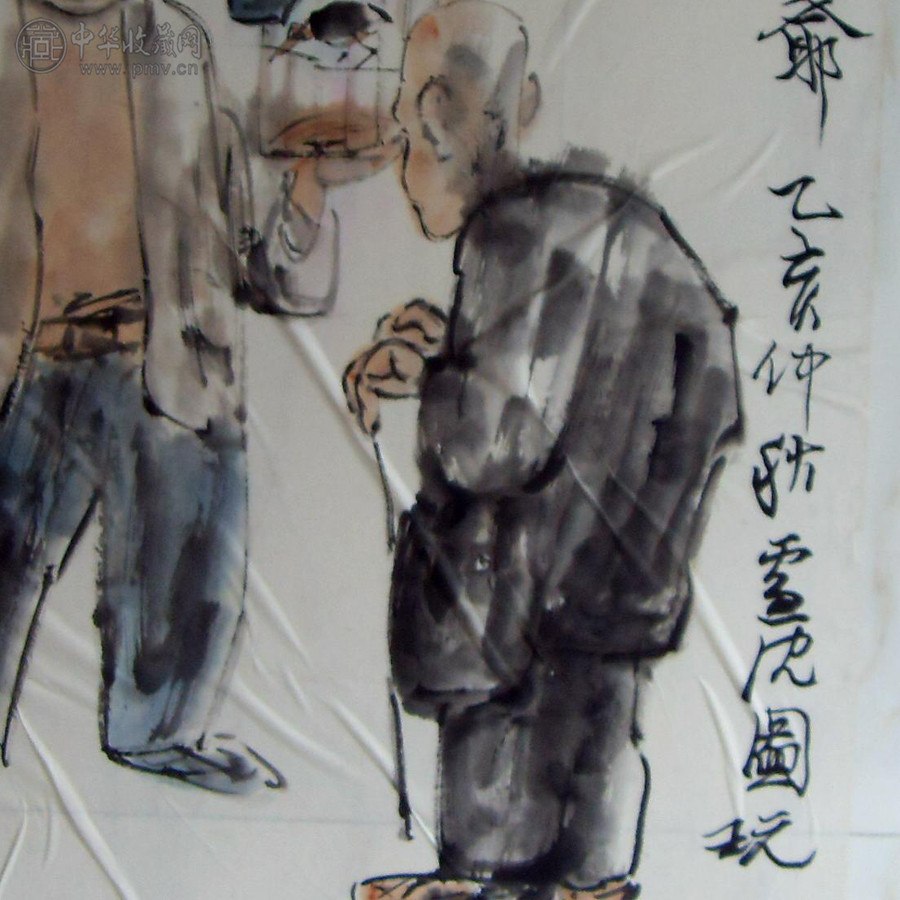 中华收藏网
www.pmv.cn
爺 乙亥仲秋雪沈圖玩